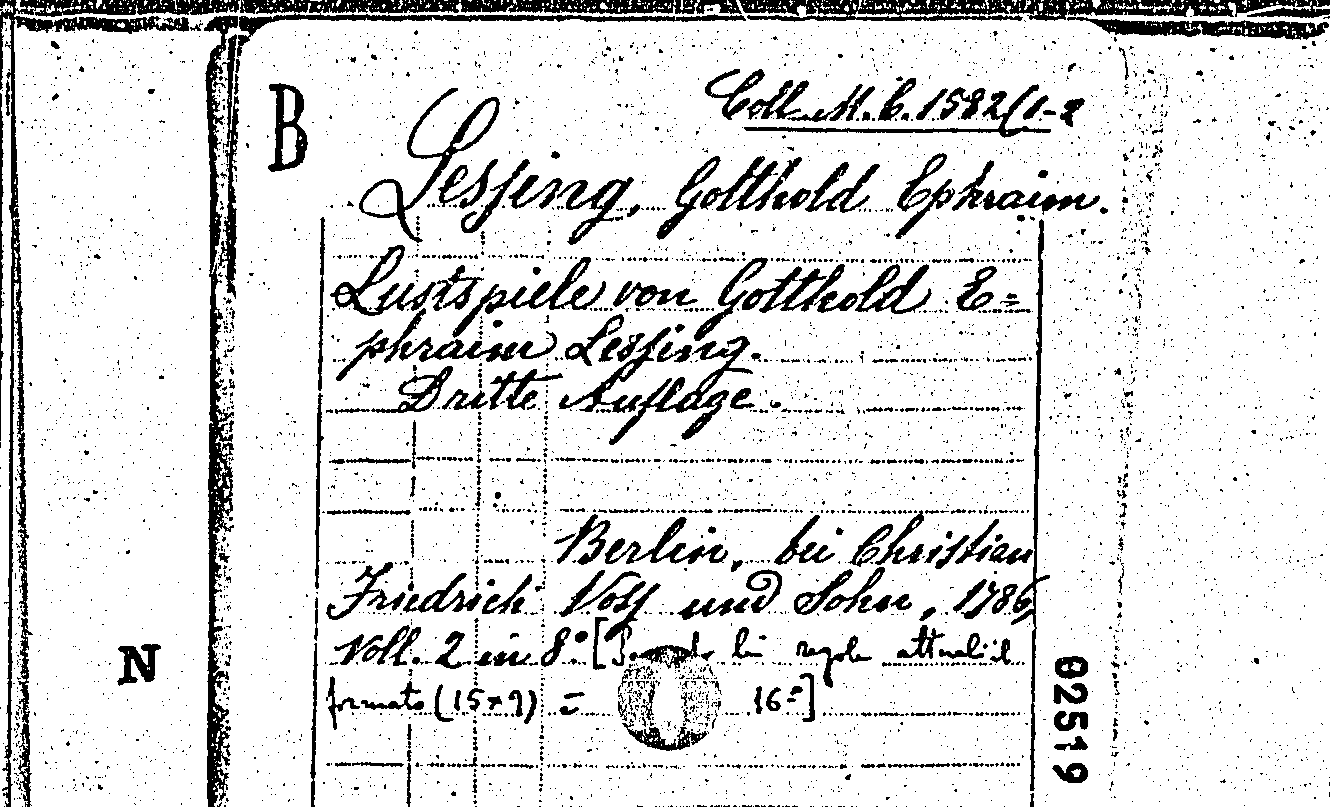 B
Coll. M. C. 1582/1-2
Lessing, Gotthold Ephraim.
Lustspiele von Gotthold E=
phraim Lessing.
Dritte Auflage.
Berlin, bei Christian
Friedrich Voss und Sohn, 1786,
Voll. 2 in 8.° [Secondo le regole attuali il
formato (15×9) = 16°]
N
02519